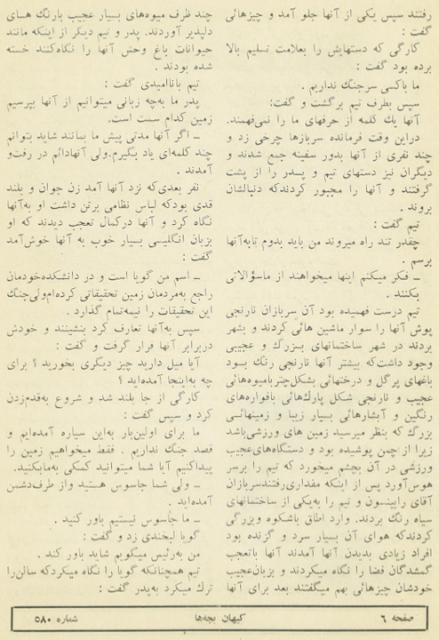 رفتند سپس یکی از آنها جلو آمد و چیزهائی
گفت :
کارگی که دستهایش را بعلامت تسلیم بالا
برده بود گفت :
ما باکسی سرجنگ نداریم .
سپس بطرف تیم برگشت و گفت:
آنها یك کلمه از حرفهای ما را نمی‌فهمند.
دراین وقت فرمانده سربازها چرخی زد و
چند نفری از آنها بدور سفینه جمع شدند و
دیگران نیز دستهای تیم و پسدر را از پشت
گرفتند و آنها را مجبور کردندکه دنبالشان
بروند .
تیم گفت :
چقدر تند راه میروند من باید بدوم تابه‌آنها
برسم .
ــ فکر میکنم اینها میخواهند از ماسؤالاتی
بکنند .
تیم درست فهمیده بود آن سربازان نارنجی
پوش آنها را سوار ماشین هائی کردند و بشهر
بردند در شهر ساختمانهای بــزرگ و عجیبی
وجود داشت‌که بیشتر آنها نارنجی رنگ بسود
باغهای پرگل و درختهائی بشکل‌چتربامیوه‌هائی
عجیب و نارنجی شکل پارك‌هائی بافواره‌های
رنگین و آبشارهائی بسیار زیبا و زمینهائسی
بزرك که بنظر میرسید زمین های ورزشی‌باشد
زیرا از چمن پوشیده بود و دستگاه‌های‌عجیب
ورزشی در آن بچشم میخورد که تیم را برسر
هوس‌آورد پس از اینکه مقداری‌رفتندسربازان
آقای رابینسون و تیم را به‌یکی از ساختمانهای
سیاه رنگ بردند. وارد اطاق باشکوه وبزرگی
کردندکه هوای آن بسیار سرد و گزنده بود
افراد زیادی بدیدن آنها آمدند آنها باتعجب
گمشدگان فضا را نگاه میکردند و بزبان‌عجیب
خودشان چیزهائی بهم میگفتند بعد برای آنها
چند ظرف میوه‌های بسیار عجیب بارنگ هسای
دلپذیر آوردند. پدر و تیم دیگر از اینکه مانند
حیوانات باغ وحش آنها را نگاه‌کنند خسته
شده بودند .
تیم باناامیدی گفت :
پدر ما به‌چه زبانی میتوانیم از آنها بپرسیم
زمین کدام سمت است.
ــ اگر آنها مدتی پیش ما بمانند شاید بتوانم
چند کلمه‌ای یاد بگیرم.ولی آنهادائم در رفت‌و
آمدند .
نفر بعدی‌که نزد آنها آمد زن جوان و بلند
قدی بودکه لباس نظامی برتن داشت او به‌آنها
نگاه کرد و آنها درکمال تعجب دیدند که او
بزبان انگلیسی بسیار خوب به آنها خوش‌آمد
گفت :
ــ اسم من گویا است و در دانشکده‌خودمان
راجع به‌مردمان زمین تحقیقاتی کرده‌ام‌ولی‌جنگ
این تحقیقات را نیمه‌تمام گذارد .
سپس به‌آنها تعارف کرد بنشینند و خودش
دربرابر آنها قرار گرفت و گفت :
آیا میل دارید چیز دیگری بخورید ؟ برای
چه به‌اینجا آمده‌اید ؟
کارگی از جا بلند شد و شروع به‌قدم‌زدن
کرد و سپس گفت :
ما برای اولین‌بار به‌این سیاره آمده‌ایم و
قصد جنگ نداریم . فقط میخواهیم زمین را
پیداکنیم آیا شما میتوانید کمکی به‌مابکنید.
ــ ولی شما جاسوس هستید واز طرف‌دشمن
آمده‌اید .
ــ ما جاسوس نیستیم باور کنید .
گویا لبخندی زد و گفت :
من به‌رئیس میگویم شاید باور کند .
تیم همچنانکه گویا را نگاه میکردکه سالن‌را
ترك میکرد به‌پدر گفت :
صفحه ۶
کیهان بچه‌ها
شماره ۵۸۰